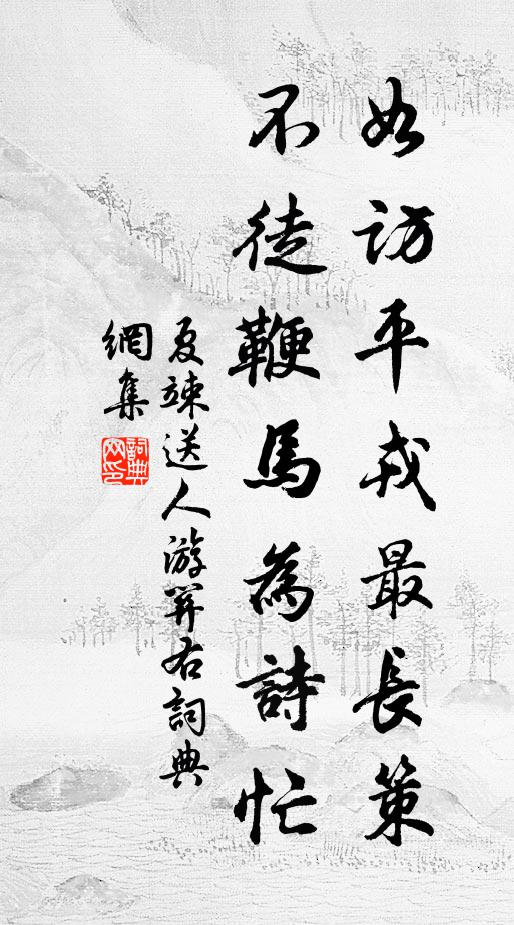 如訪平戎最長策
不徒鞭馬為詩忙
夏竦送人游并右詞典
網集
詞典網印